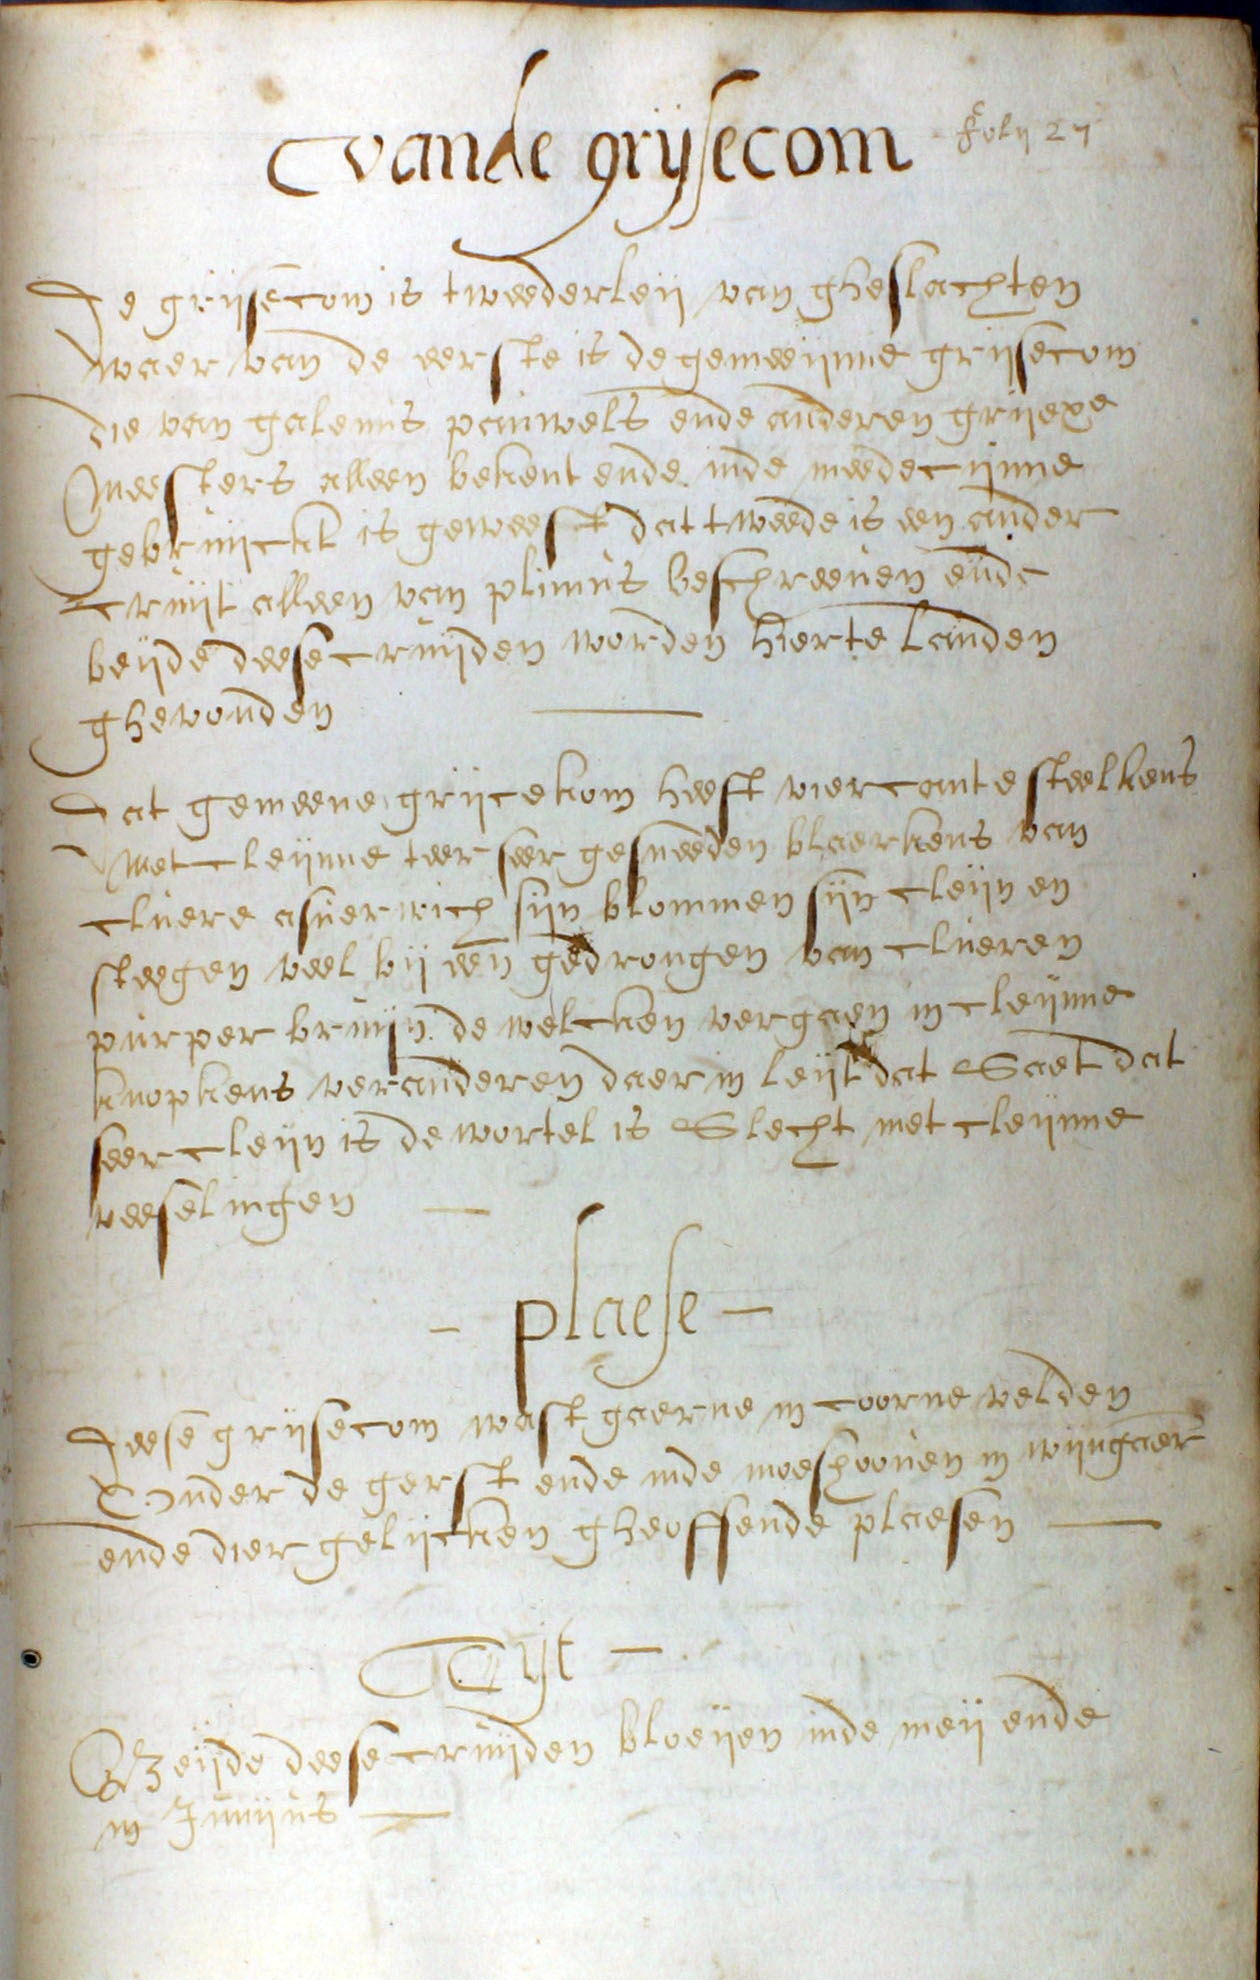 vande grijsecom
folij 27
De grijsecom is tweederleij van gheslachten
waer van de eerste is de gemeijnne grijsecom
die van galenus pauwels ende anderen grijexe
Meesters alleen bekent ende inde meedecijnne
gebruijckt is geweest dat tweede is een ander
cruijt alleen van plinius beschreeven ende
beijde deese cruijden worden hier te landen
ghevonden
Dat gemeene grijcekom heeft viercante steelkens
Met cleijnne teer seer gesneeden blaerkens van
cluere asuerwich sijn blommen sijn cleijn en
steegen veel bij een gedrongen van clueren
purper bruijn de welcken vergaen in cleijnne
knopkens veranderen daer in leijt dat Saet dat
seer cleijn is de wortel is Slecht met cleijnne
veeselingen
plaese
Deese grijsecom wast gaerne in coorne velden
Onder de gerst ende inde moeshooven in wijngaer
ende dier gelijcken gheoffende plaesen
Tijt
Beijde deese cruijden bloeijen inde meij ende
in Junijus